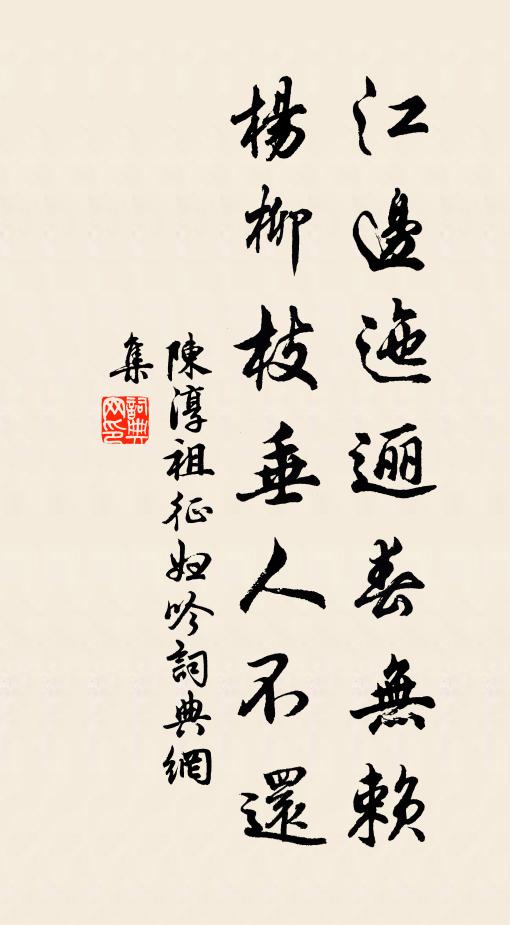 江邊迤逦春無賴
楊柳枝垂人不還
陳淳祖征妇吟詞典網
集
詞典
网印